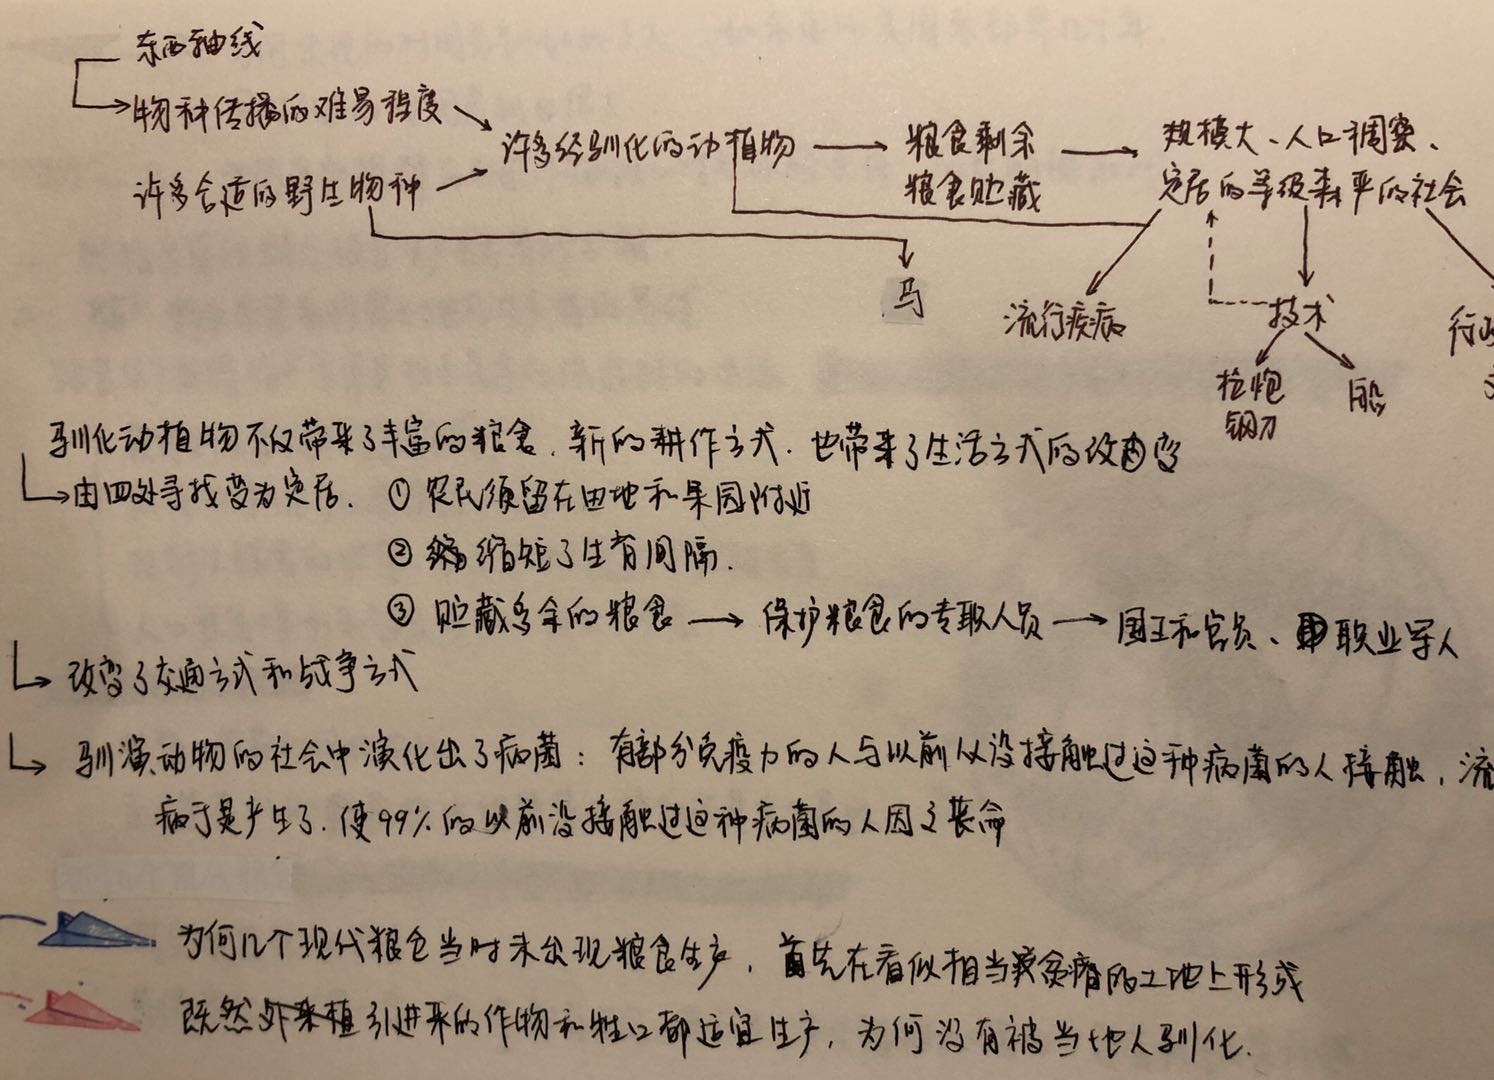 东西轴线
物种传播的难易程度
许多合适的野生物种
许多经驯化的动植物
粮食剩余
粮食贮藏
规模大、人口稠密、
定居的等级森严的社会
马
流行疾病
技术
枪炮
钢刀
船
行政
驯化动植物不仅带来了丰富的粮食、新的耕作方式、也带来了生活方式的改变
由四处寻找变为定居. ① 农民须留在田地和果园附近
② 缩短了生育间隔.
③ 贮藏多余的粮食 → 保护粮食的专职人员 → 国王和官员、职业军人
改变了交通方式和战争方式
驯演动物的社会中演化出了病菌: 有部分免疫力的人与以前从没接触过这种病菌的人接触, 流
病于是产生了. 使99%的以前没接触过这种病菌的人因之丧命
为何几个现代粮仓当时未出现粮食生产, 首先在看似相当贫瘠的土地上形成
既然外来植引进来的作物和牲口都适宜生产, 为何没有被当地人驯化.